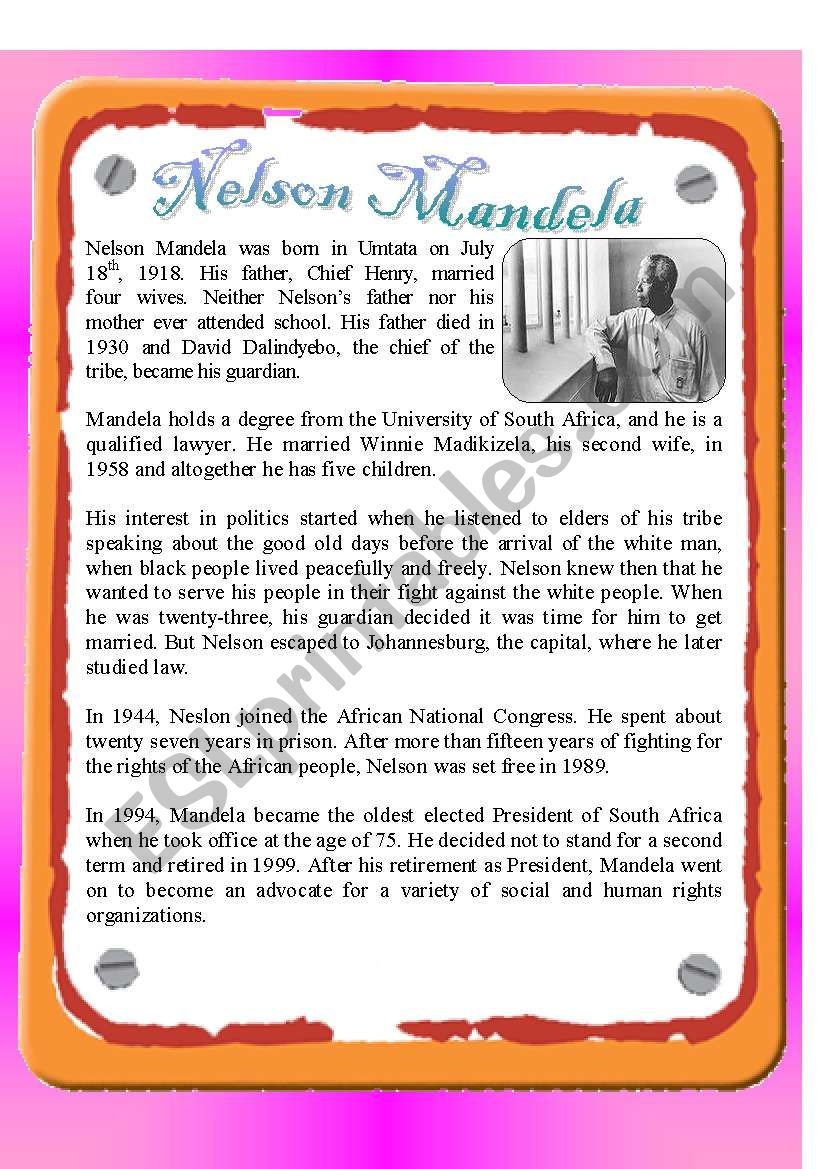 Nelson Mandela
Nelson Mandela was born in Umtata on July
18th, 1918. His father, Chief Henry, married
four wives. Neither Nelson's father nor his
mother ever attended school. His father died in
1930 and David Dalindyebo, the chief of the
tribe, became his guardian.
Mandela holds a degree from the University of South Africa, and he is a
qualified lawyer. He married Winnie Madikizela, his second wife, in
1958 and altogether he has five children.
His interest in politics started when he listened to elders of his tribe
speaking about the good old days before the arrival of the white man,
when black people lived peacefully and freely. Nelson knew then that he
wanted to serve his people in their fight against the white people. When
he was twenty-three, his guardian decided it was time for him to get
married. But Nelson escaped to Johannesburg, the capital, where he later
studied law.
In 1944, Neslon joined the African National Congress. He spent about
twenty seven years in prison. After more than fifteen years of fighting for
the rights of the African people, Nelson was set free in 1989.
In 1994, Mandela became the oldest elected President of South Africa
when he took office at the age of 75. He decided not to stand for a second
term and retired in 1999. After his retirement as President, Mandela went
on to become an advocate for a variety of social and human rights
organizations.
ESLprintables.com